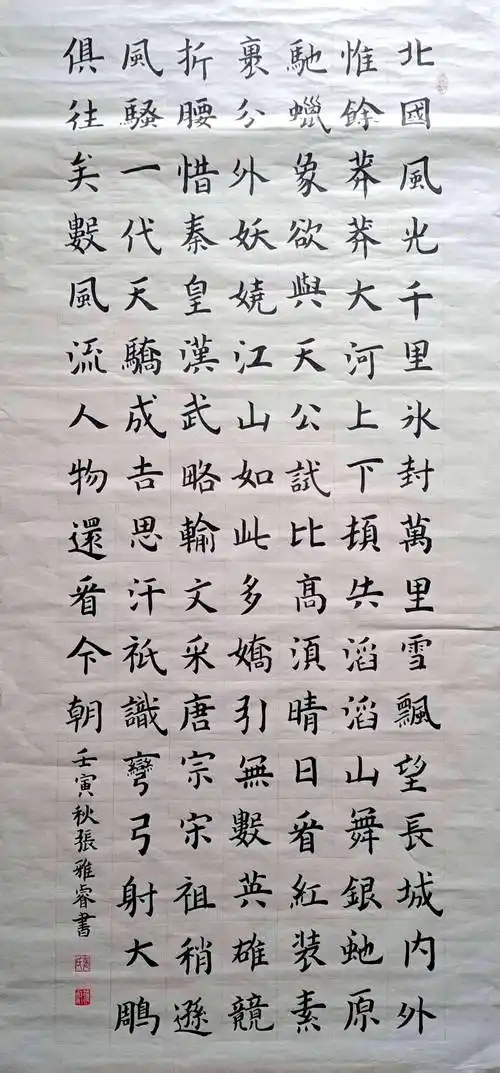 北國風光千里氷封萬里雪飄望長城内外
惟餘莽莽大河上下頓失滔滔山舞銀虵原
馳蠟象欲與天公試比髙須晴日看紅装素
裹分外妖嬈江山如此多嬌引無數英雄競
折腰惜秦皇漢武略輸文采唐宗宋祖稍遜
風騷一代天驕成吉思汗祇識彎弓射大鵰
俱往矣數風流人物還看今朝壬寅秋張雅睿書